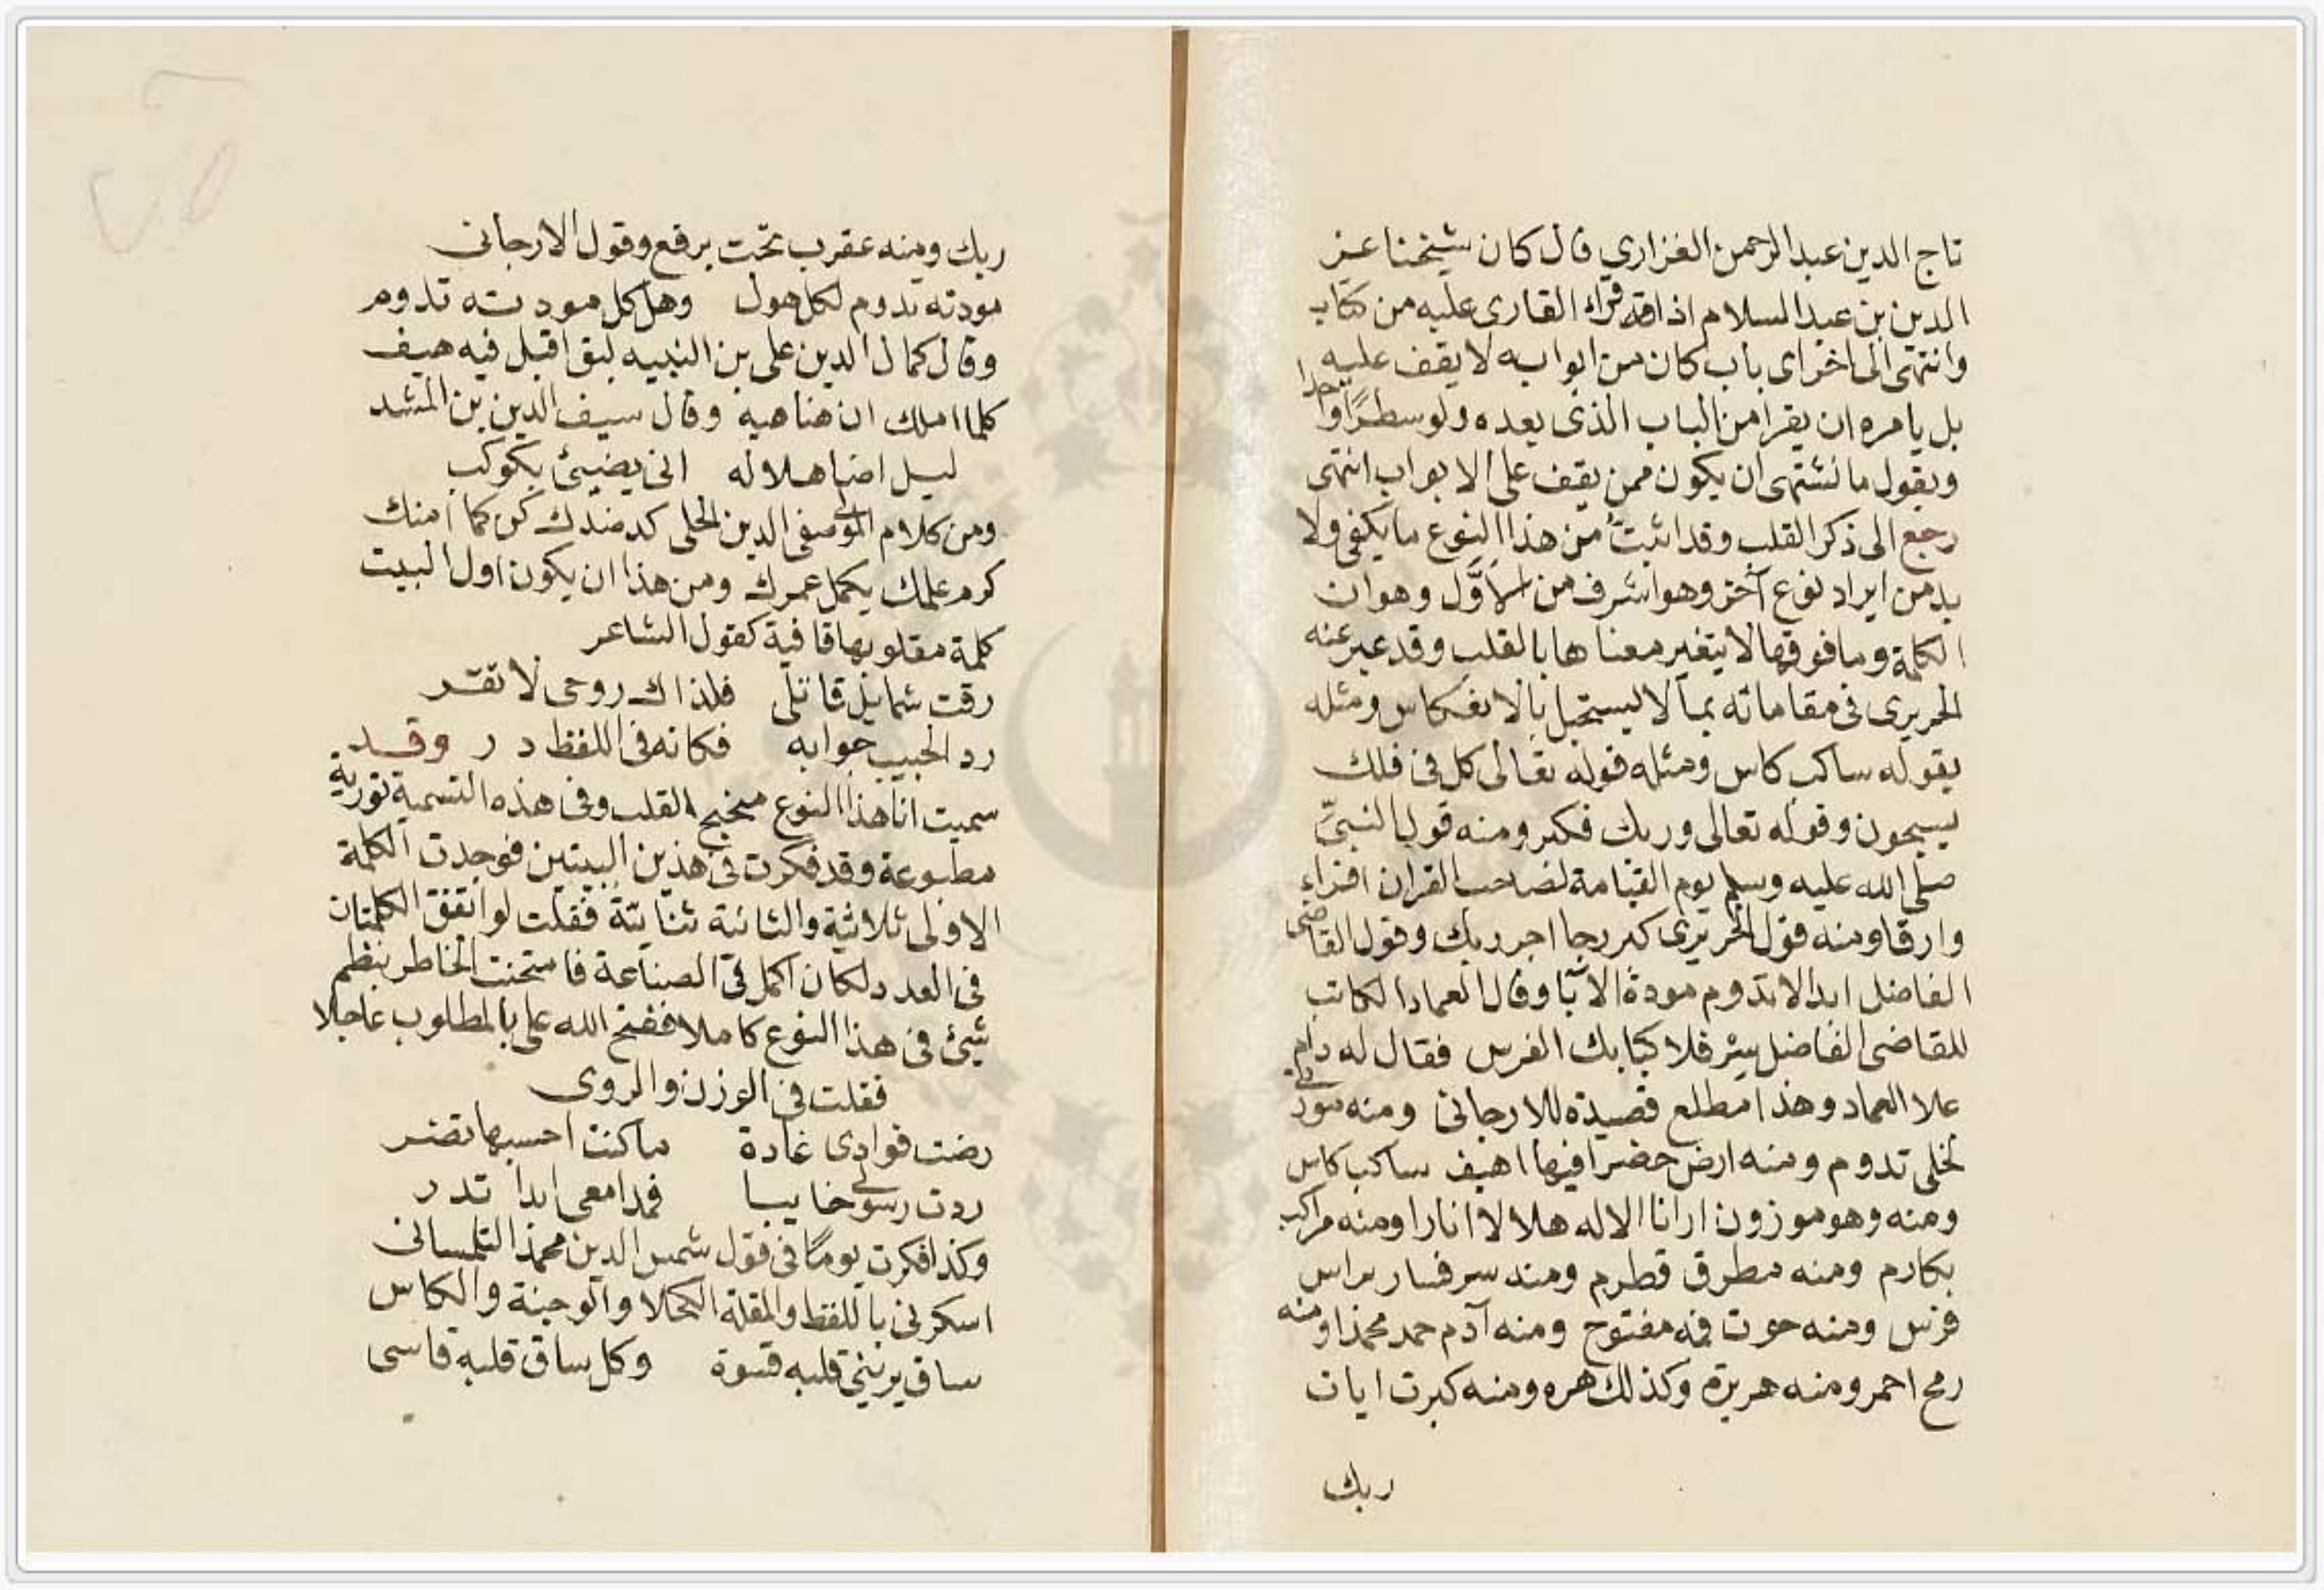 تاج الدين عبد الرحمن الفزاري قال كان شيخنا عز
الدين بن عبد السلام اذا قراء القارى عليه من كتاب
وانتهى الى اخر اى باب كان من ابوابه لا يقف عليه
بل يامره ان يقرا من الباب الذى بعده ولو سطرًا واحدا
ويقول ما نشتهى ان يكون ممن يقف على الابواب انتهى
رجع الى ذكر القلب وقد اثبتُ من هذا النوع ما يكفى ولا
بد من ايراد نوع آخر وهو اشرف من الاوَّل وهو ان
الكلمة وما فوقها لا يتغير معناها بالقلب وقد عبر عنه
الحريرى فى مقاماته بما لا يستحيل بالانعكاس ومثله
بقوله ساكب كاس ومثله قوله تعالى كل فى فلك
يسبحون وقوله تعالى وربك فكبر ومنه قول النبىّ
صلى الله عليه وسلم يوم القيامة لصاحب القران اقراء
وارقا ومنه قول الحريرى كبر رجا اجر ربك وقول القاضى
الفاضل ابدا لا تدوم مودة الا بآ وقال العماد الكاتب
للقاضى الفاضل سر فلا كبابك الفرس فقال له دام
علا العماد وهذا مطلع قصيدة للارجانى ومنه مودتى
لخلى تدوم ومنه ارض خضرا فيها اهيف ساكب كاس
ومنه وهو موزون ارانا الاله هلالا انارا ومنه مراكب
بكارم ومنه مطرق قطرم ومنه سر فسار براس
فرس ومنه حوت فمه مفتوح ومنه آدم حمد محمدا ومنه
رمح احمر ومنه هريرة وكذلك هره ومنه كبرت ايات
ربك
ربك ومنه عقرب تحت برقع وقول الارجانى
مودته تدوم لكل هول وهل كل مودته تدوم
وقال كمال الدين على بن النبيه لبق اقبل فيه هيف
كلما املك ان هناهيه وقال سيف الدين بن المشد
ليل اضا هلاله انى يضيئ بكوكب
ومن كلام الصفى الدين الحلى كد ضدك كن كما امنك
كرم علمك يكمل عمرك ومن هذا ان يكون اول البيت
كلمة مقلوبها قافية كقول الشاعر
رقت شمايل قاتلى فلذاك روحى لا تقر
رد الحبيب جوابه فكانه فى اللفظ در وقد
سميت انا هذا النوع مجنح القلب وفى هذه التسمية تورية
مطبوعة وقد فكرت فى هذين البيتين فوجدت الكلمة
الاولى ثلاثية والثانية ثنايية فقلت لو اتفق الكلمتان
فى العدد لكان اكمل فى الصناعة فامتحنت الخاطر بنظم
شيئ فى هذا النوع كاملا ففتح الله على بالمطلوب عاجلا
فقلت فى الوزن والروى
رضت فوادى غادة ماكنت احسبها تضر
ردت رسولى خايبا فمدامعى ابدا تدر
وكذا فكرت يومًا فى قول شمس الدين محمد التلمسانى
اسكرنى باللفظ والمقلة الكحلا والوجنة والكاس
ساق يرينى قلبه قسوة وكل ساق قلبه قاسى